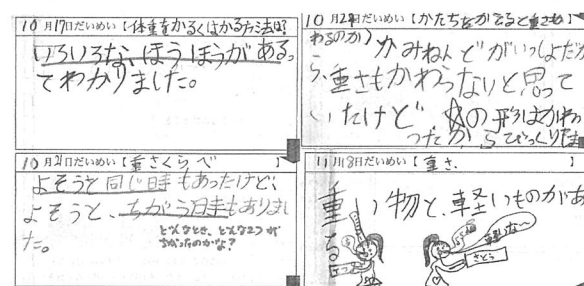 10月17日だいめい【体重をかるくはかる方法は?
いろいろなほうほうがある
てわかりました。
10月21日だいめい【重さくらべ】
よそうと同じ日もあったけど、
よそうと、ちがう日もありまし
た。
どんなとき、どんな2つが
ちがったのかな?
10月24日だいめい【かたちをかえると重さも
わるのか】
かみねんどがいっしょだか
ら、重さもかわらないと思って
いたけど、
の形はかわ
ったからびっくりしま
11月8日だいめい【重さ】
重い物と、軽いものがあ
る
軽いな~
さとう